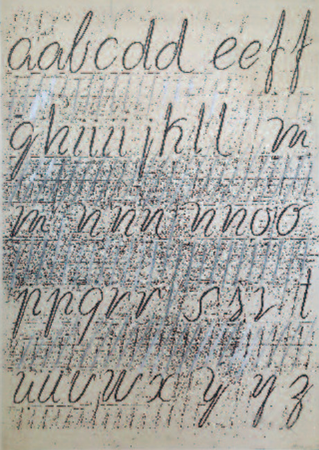 aabcdd eeff
ghiiijkll m
m nnn nnoo
ppqrr sssr t
uuvwx y yz